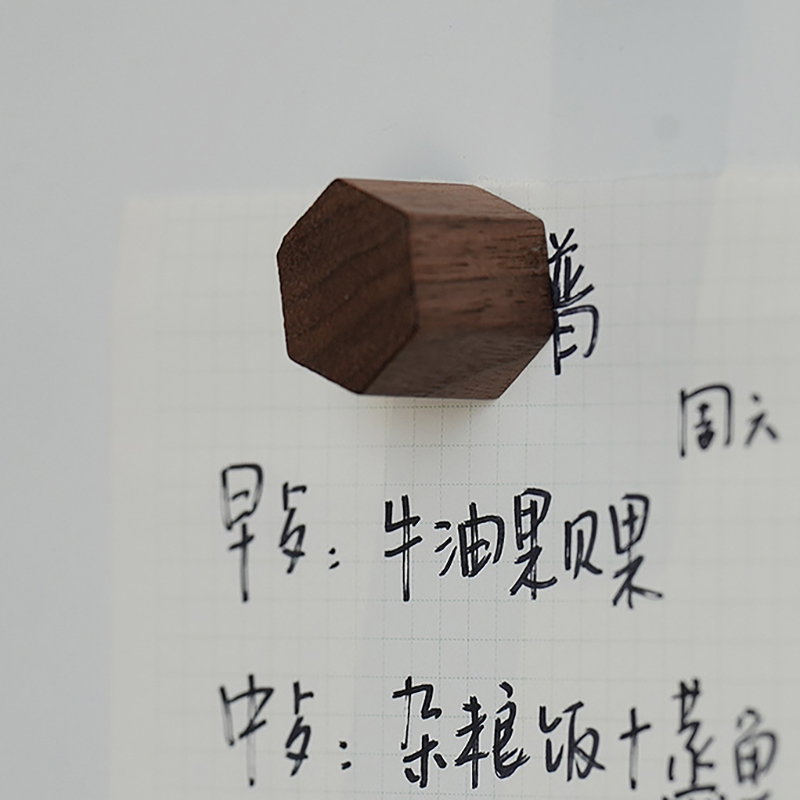 普
周六
早歺：牛油果贝果
中歺：杂粮饭+蒸鱼